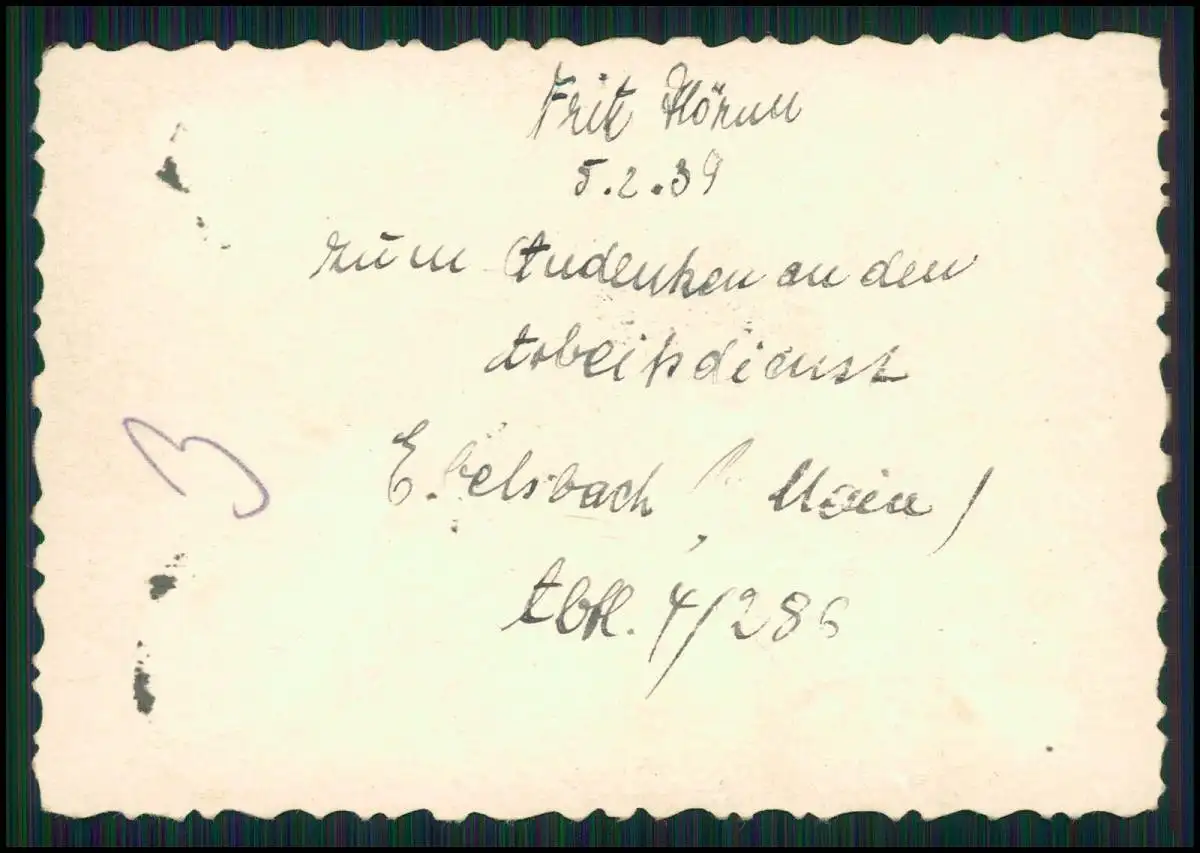 Fritz
5.2.39
zum Andenken an den
Arbeitsdienst
Ebelsbach (Main)
Abtl. 4/286